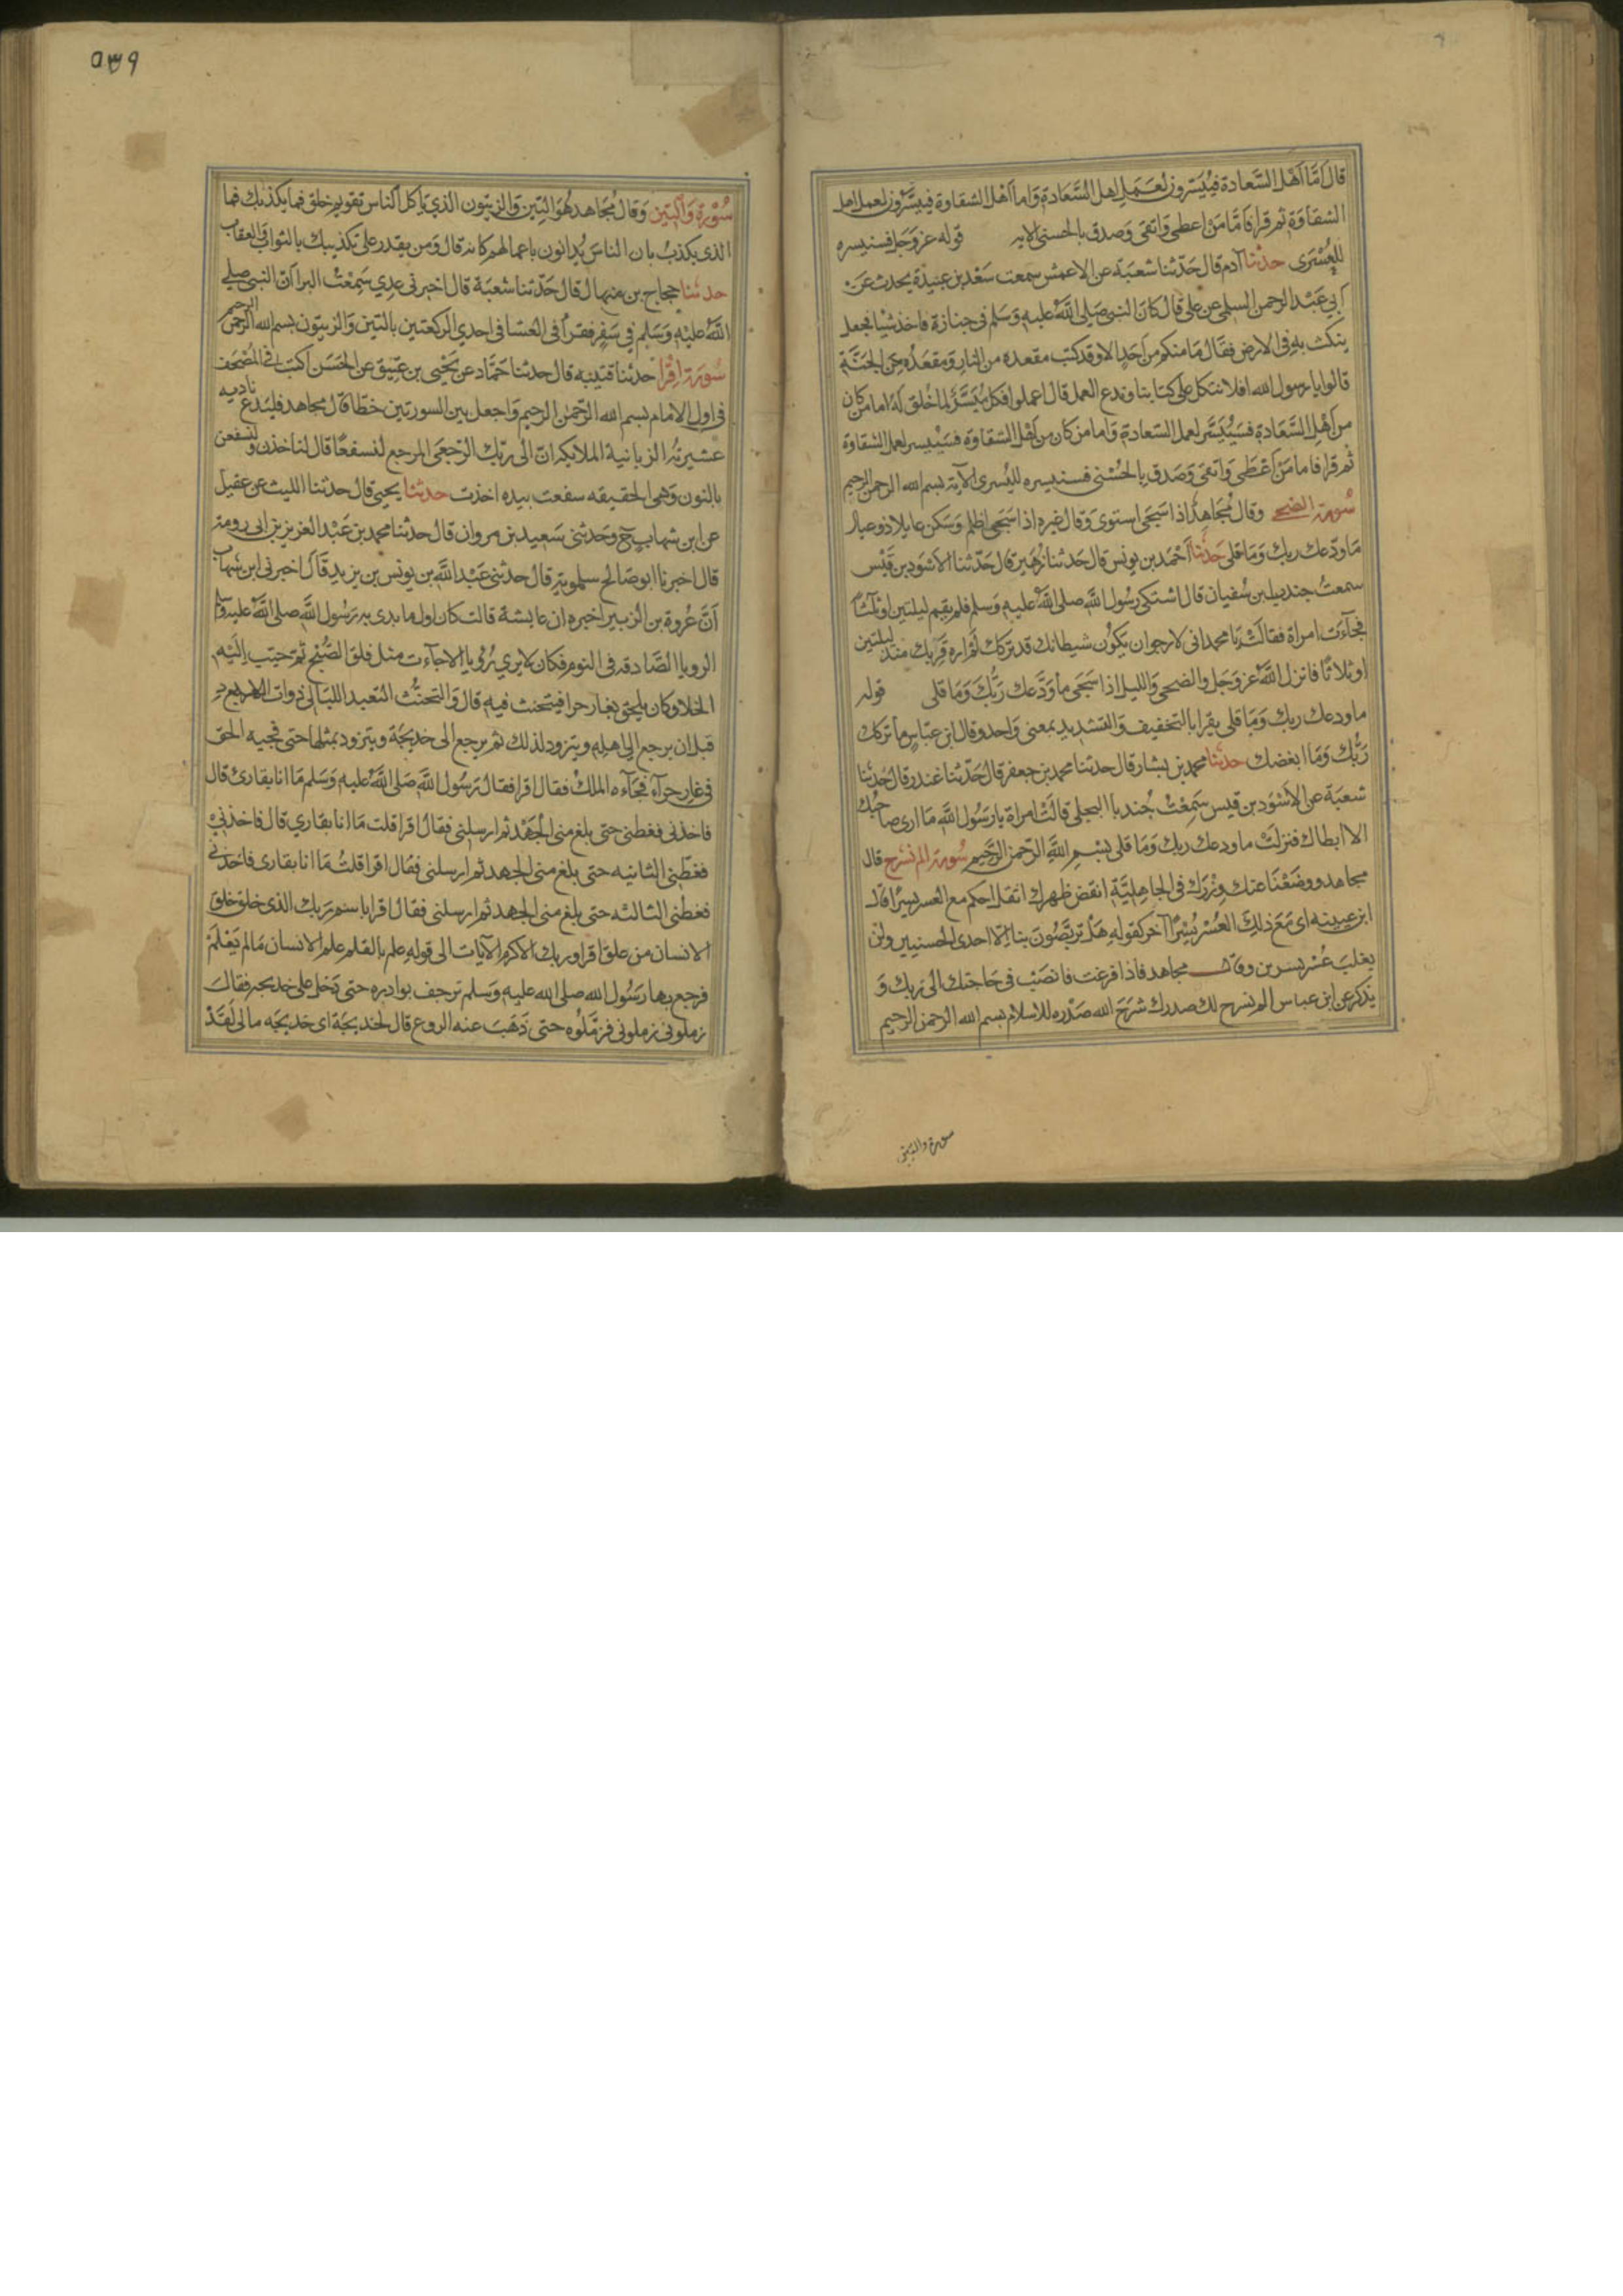 قال اما اهل السعادة فييسرون لعمل اهل السعادة واما اهل الشقاوة فييسرون لعمل اهل
الشقاوة ثم قرا فاما من اعطى واتقى وصدق بالحسنى الايه قوله عز وجل فسنيسره
للعسرى حدثنا آدم قال حدثنا شعبة عن الاعمش سمعت سعد بن عبيدة يحدث عن
ابي عبد الرحمن السلمي عن علي قال كان النبي صلى الله عليه وسلم في جنازة فاخذ شيا فجعل
ينكث به في الارض فقال ما منكم من احد الا وقد كتب مقعده من النار ومقعده من الجنة
قالوا يا رسول الله افلا نتكل على كتابنا وندع العمل قال اعملوا فكل ميسر لما خلق له اما من كان
من اهل السعادة فسييسر لعمل السعادة واما من كان من اهل الشقاوة فسييسر لعمل الشقاوة
ثم قرا فاما من اعطى واتقى وصدق بالحسنى فسنيسره لليسرى الآية بسم الله الرحمن الرحيم
سورة الضحى وقال مجاهد اذا سجى استوى وقال غيره اذا سجى اظلم وسكن عايلا ذو عيال
ما ودعك ربك وما قلى حدثنا احمد بن يونس قال حدثنا زهير قال حدثنا الاسود بن قيس
سمعت جندب بن سفيان قال اشتكى رسول الله صلى الله عليه وسلم فلم يقم ليلتين او ثلثا
فجآءت امراة فقالت يا محمد اني لارجو ان يكون شيطانك قد تركك لم اره قربك منذ ليلتين
او ثلاثا فانزل الله عز وجل والضحى والليل اذا سجى ما ودعك ربك وما قلى قوله
ما ودعك ربك وما قلى يقرا بالتخفيف والتشديد بمعنى واحد وقال ابن عباس ما تركك
ربك وما ابغضك حدثنا محمد بن بشار قال حدثنا محمد بن جعفر قال حدثنا غندر قال حدثنا
شعبة عن الاسود بن قيس سمعت جندبا البجلي قالت امراة يا رسول الله ما ارى صاحبك
الا ابطاك فنزلت ما ودعك ربك وما قلى بسم الله الرحمن الرحيم سورة الم نشرح قال
مجاهد ووضعنا عنك وزرك في الجاهلية انقض ظهرك اثقل احكم مع العسر يسرا قال
ابن عيينه اى مع ذلك العسر يسرا آخر كقوله هل تربصون بنا الا احدى الحسنيين ولن
يغلب عسر يسرين وقال مجاهد فاذا فرغت فانصب في حاجتك الى ربك و
يذكر عن ابن عباس الم نشرح لك صدرك شرح الله صدره للاسلام بسم الله الرحمن الرحيم
سورة والتين
٥٣٩
سورة والتين وقال مجاهد هو التين والزيتون الذي ياكل الناس تقويم خلق فما يكذبك فما
الذى يكذب بان الناس يدانون باعمالهم كانه قال ومن يقدر على تكذيبك بالثواب والعقاب
حدثنا حجاج بن منهال قال حدثنا شعبة قال اخبرني عدي سمعت البرا ان النبي صلى
الله عليه وسلم في سفر فقرا في العشا في احدي الركعتين بالتين والزيتون بسم الله الرحمن الرحيم
سورة اقرا حدثنا قتيبه قال حدثنا حماد عن يحيى بن عتيق عن الحسن اكتب في المصحف
في اول الامام بسم الله الرحمن الرحيم واجعل بين السورتين خطا قال مجاهد فليدع ناديه
عشيرته الزبانية الملايكه ان الى ربك الرجعى المرجع لنسفعا قال لناخذن ولنسفعن
بالنون وهى الخفيفه سفعت بيده اخذت حدثنا يحيي قال حدثنا الليث عن عقيل
عن ابن شهاب ح وحدثني سعيد بن مروان قال حدثنا محمد بن عبد العزيز بن ابي رزمة
قال اخبرنا ابو صالح سلمويه قال حدثني عبد الله بن يونس بن يزيد قال اخبرني ابن شهاب
ان عروة بن الزبير اخبره ان عايشة قالت كان اول ما بدى به رسول الله صلى الله عليه وسلم
الرويا الصادقه في النوم فكان لا يري رؤيا الا جآءت مثل فلق الصبح ثم حبب اليه
الخلا وكان يلحق بغار حرا فيتحنث فيه قال والتحنث التعبد الليالي ذوات العدد
قبل ان يرجع الى اهله ويتزود لذلك ثم يرجع الى خديجة ويتزود بمثلها حتى فجيه الحق
في غار حرآء فجآءه الملك فقال اقرا فقال رسول الله صلى الله عليه وسلم ما انا بقارئ قال
فاخذني فغطني حتى بلغ مني الجهد ثم ارسلني فقال اقرا قلت ما انا بقاري قال فاخذني
فغطني الثانيه حتى بلغ مني الجهد ثم ارسلني فقال اقرا قلت ما انا بقارى فاخذني
فغطني الثالثه حتى بلغ مني الجهد ثم ارسلني فقال اقرا باسم ربك الذى خلق خلق
الانسان من علق اقرا وربك الاكرم الآيات الى قوله علم بالقلم علم الانسان ما لم يعلم
فرجع بها رسول الله صلى الله عليه وسلم ترجف بوادره حتى دخل على خديجه فقال
زملوني زملوني فزملوه حتى ذهب عنه الروع قال لخديجة اى خديجه مالي لقد